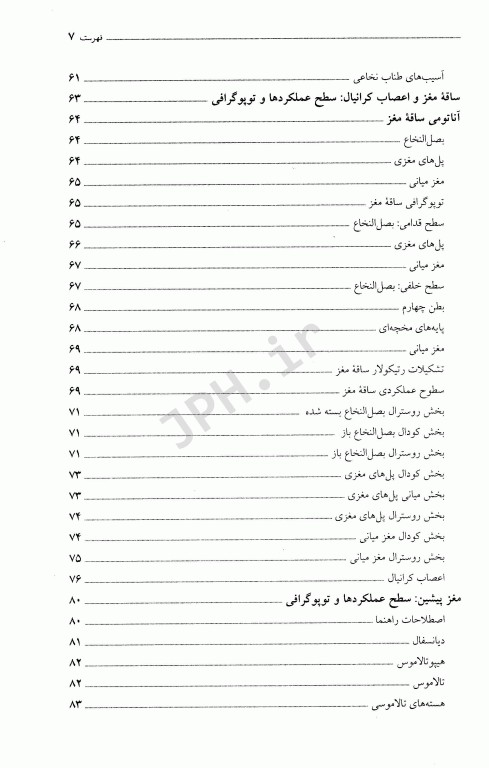 فهرست ۷
آسیب‌های طناب نخاعی ۶۱
ساقهٔ مغز و اعصاب کرانیال: سطح عملکردها و توپوگرافی ۶۳
آناتومی ساقهٔ مغز ۶۴
بصل‌النخاع ۶۴
پل‌های مغزی ۶۴
مغز میانی ۶۵
توپوگرافی ساقهٔ مغز ۶۵
سطح قدامی: بصل‌النخاع ۶۵
پل‌های مغزی ۶۶
مغز میانی ۶۷
سطح خلفی: بصل‌النخاع ۶۷
بطن چهارم ۶۸
پایه‌های مخچه‌ای ۶۸
مغز میانی ۶۹
تشکیلات رتیکولار ساقهٔ مغز ۶۹
سطوح عملکردی ساقهٔ مغز ۶۹
بخش روسترال بصل‌النخاع بسته شده ۷۱
بخش کودال بصل‌النخاع باز ۷۱
بخش روسترال بصل‌النخاع باز ۷۱
بخش کودال پل‌های مغزی ۷۳
بخش میانی پل‌های مغزی ۷۳
بخش روسترال پل‌های مغزی ۷۴
بخش کودال مغز میانی ۷۴
بخش روسترال مغز میانی ۷۵
اعصاب کرانیال ۷۶
مغز پیشین: سطح عملکردها و توپوگرافی ۸۰
اصطلاحات راهنما ۸۰
دیانسفال ۸۱
هیپوتالاموس ۸۲
تالاموس ۸۲
هسته‌های تالاموسی ۸۳
JPH.ir